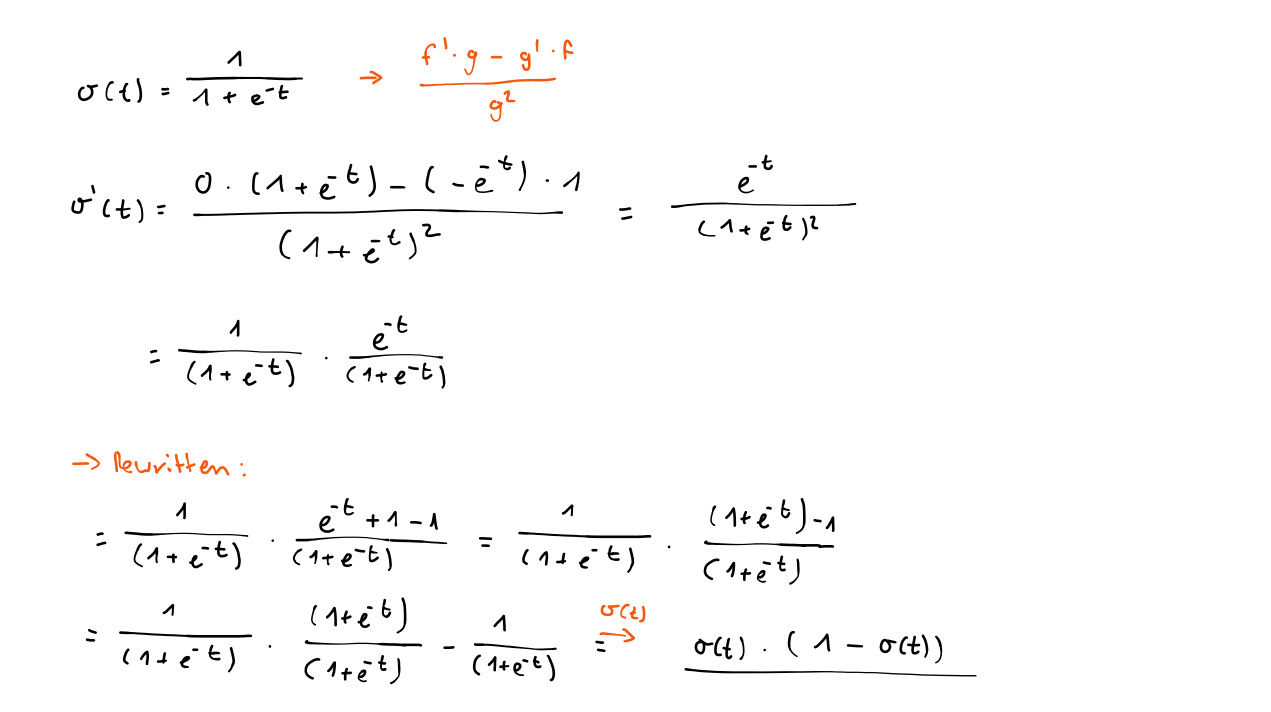 σ(t) = 1 / (1 + e^-t) → (f' · g - g' · f) / g²
σ'(t) = (0 · (1 + e^-t) - (-e^-t) · 1) / (1 + e^-t)² = e^-t / (1 + e^-t)²
= 1 / (1 + e^-t) · e^-t / (1 + e^-t)
→ Rewritten:
= 1 / (1 + e^-t) · (e^-t + 1 - 1) / (1 + e^-t) = 1 / (1 + e^-t) · ((1 + e^-t) - 1) / (1 + e^-t)
= 1 / (1 + e^-t) · (1 + e^-t) / (1 + e^-t) - 1 / (1 + e^-t) = σ(t) → σ(t) · (1 - σ(t))